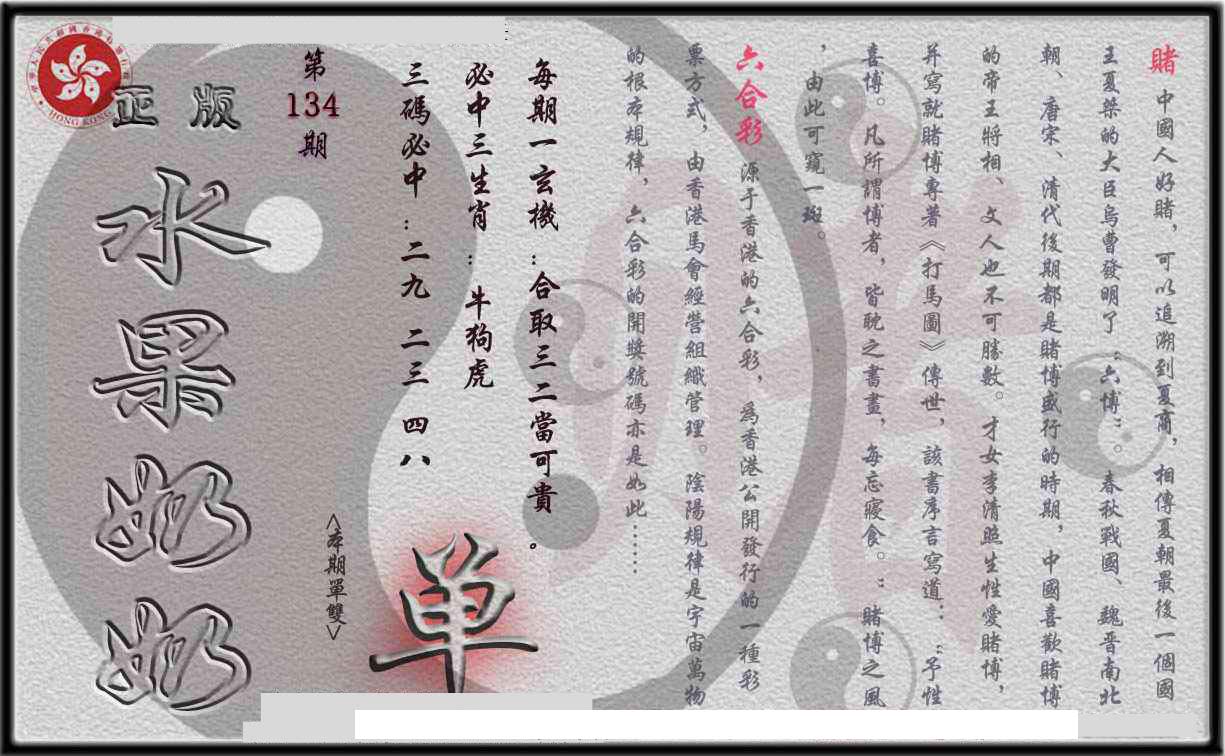 賭 中國人好賭，可以追溯到夏商，相傳夏朝最後一個國
王夏桀的大臣烏曹發明了“六博”。春秋戰國、魏晋南北
朝、唐宋、清代後期都是賭博盛行的時期，中國喜歡賭博
的帝王將相、文人也不可勝數。才女李清照生性愛賭博，
并寫就賭博專著《打馬圖》傳世，該書序言寫道：“予性
喜博。凡所謂博者，皆耽之書晝，每忘寢食。”賭博之風
，由此可窺一斑。
六合彩 源于香港的六合彩，為香港公開發行的一種彩
票方式，由香港馬會經營組織管理。陰陽規律是宇宙萬物
的根本規律，六合彩的開獎號碼亦是如此……
每期一玄機：合取三二當可貴。
必中三生肖：牛狗虎
三碼必中：二九 二三 四八
单
<本期單雙>
第
134
期
正版
水果奶奶
HONG KONG